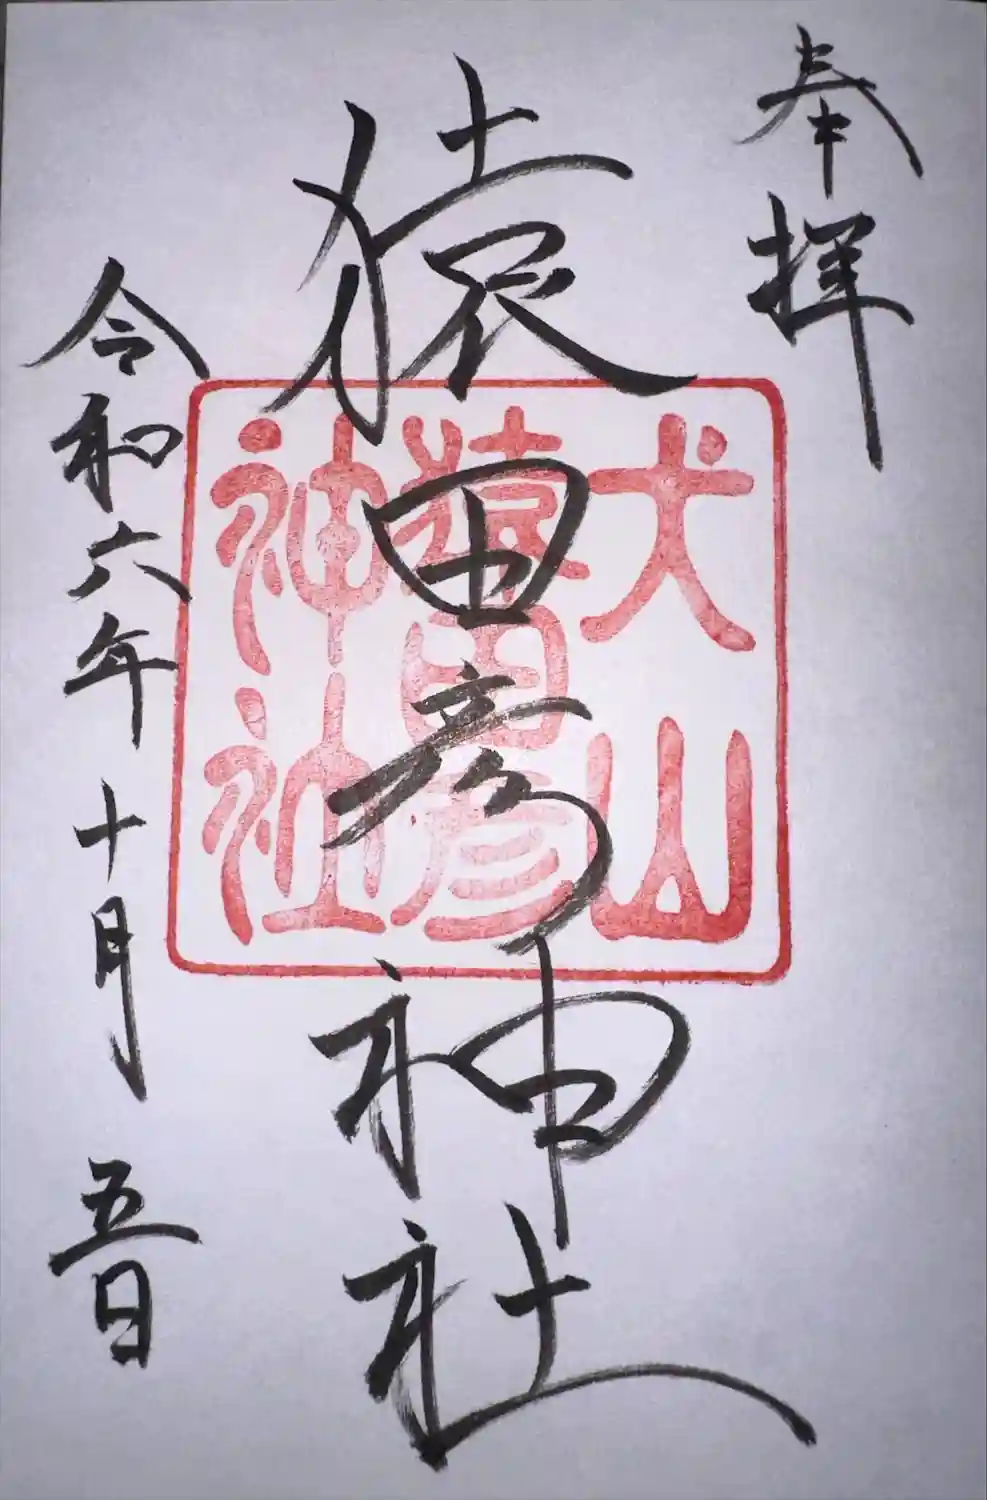 奉拝
猿田彦神社
犬山
猿田彦
神社
令和六年十月五日